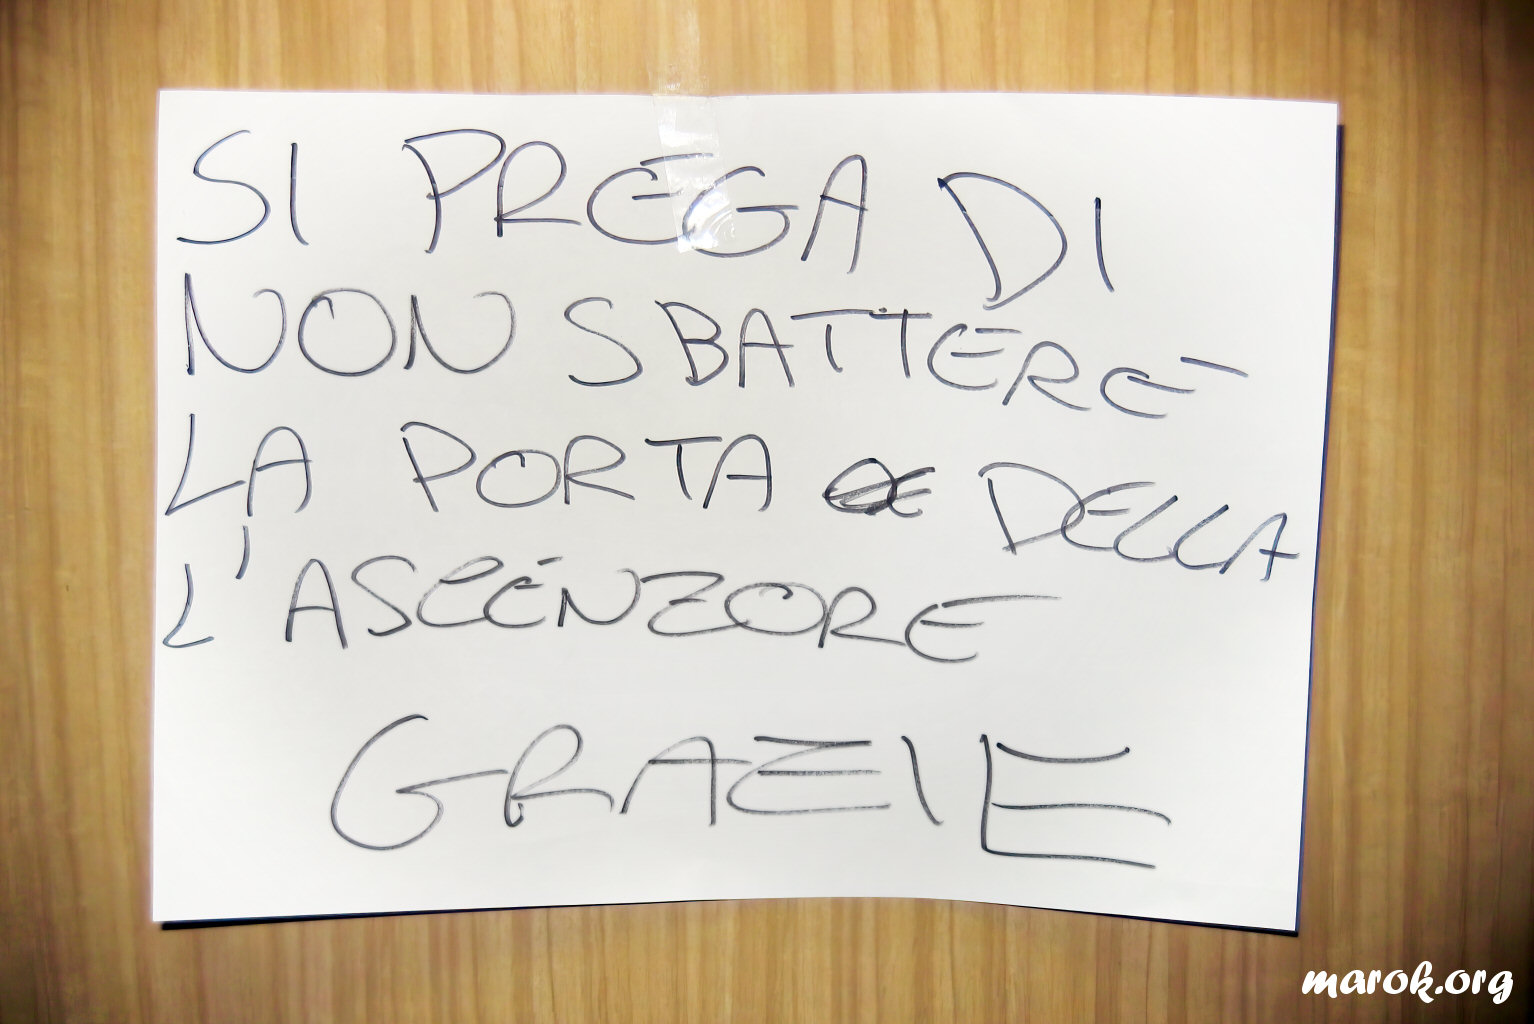 SI PREGA DI
NON SBATTERE
LA PORTA DELLA
L'ASCENZORE
GRAZIE
marok.org